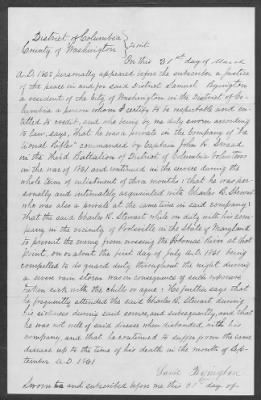 District of Columbia
County of Washington } to wit.
On this 31st day of March
A.D. 1865 personally appeared before the subscriber a justice
of the peace in and for said District Samuel Byington
a resident of the City of Washington in the District of Co-
lumbia a person whom I certify to be respectable and en-
titled to credit, and who being by me duly sworn according
to law, says, that he was a private in the Company of "Na
tional Rifles" commanded by Captain John R. Smead
in the Third Battalion of District of Columbia Volunteers
in the war of 1861 and continued in the service during the
whole term of enlistment of three months: that he was per-
sonally and intimately acquainted with Charles R. Stewart
who was also a private at the same time in said company:
that the said Charles R. Stewart while on duty with his com-
pany in the vicinity of Poolesville in the State of Maryland
to prevent the enemy from crossing the Potomac River at that
point, on or about the first day of July A.D. 1861 being
compelled to do guard duty throughout the night during
a severe rain storm was in consequence of such exposure
taken sick with the chills or ague: He further says that
he frequently attended the said Charles R. Stewart during
his sickness during said service, and subsequently, and that
he was not well of said disease when disbanded with his
company, and that he continued to suffer from the same
disease up to the time of his death in the month of Sep-
tember A.D. 1861
Saml Byington
Sworn to and subscribed before me this 31st day of